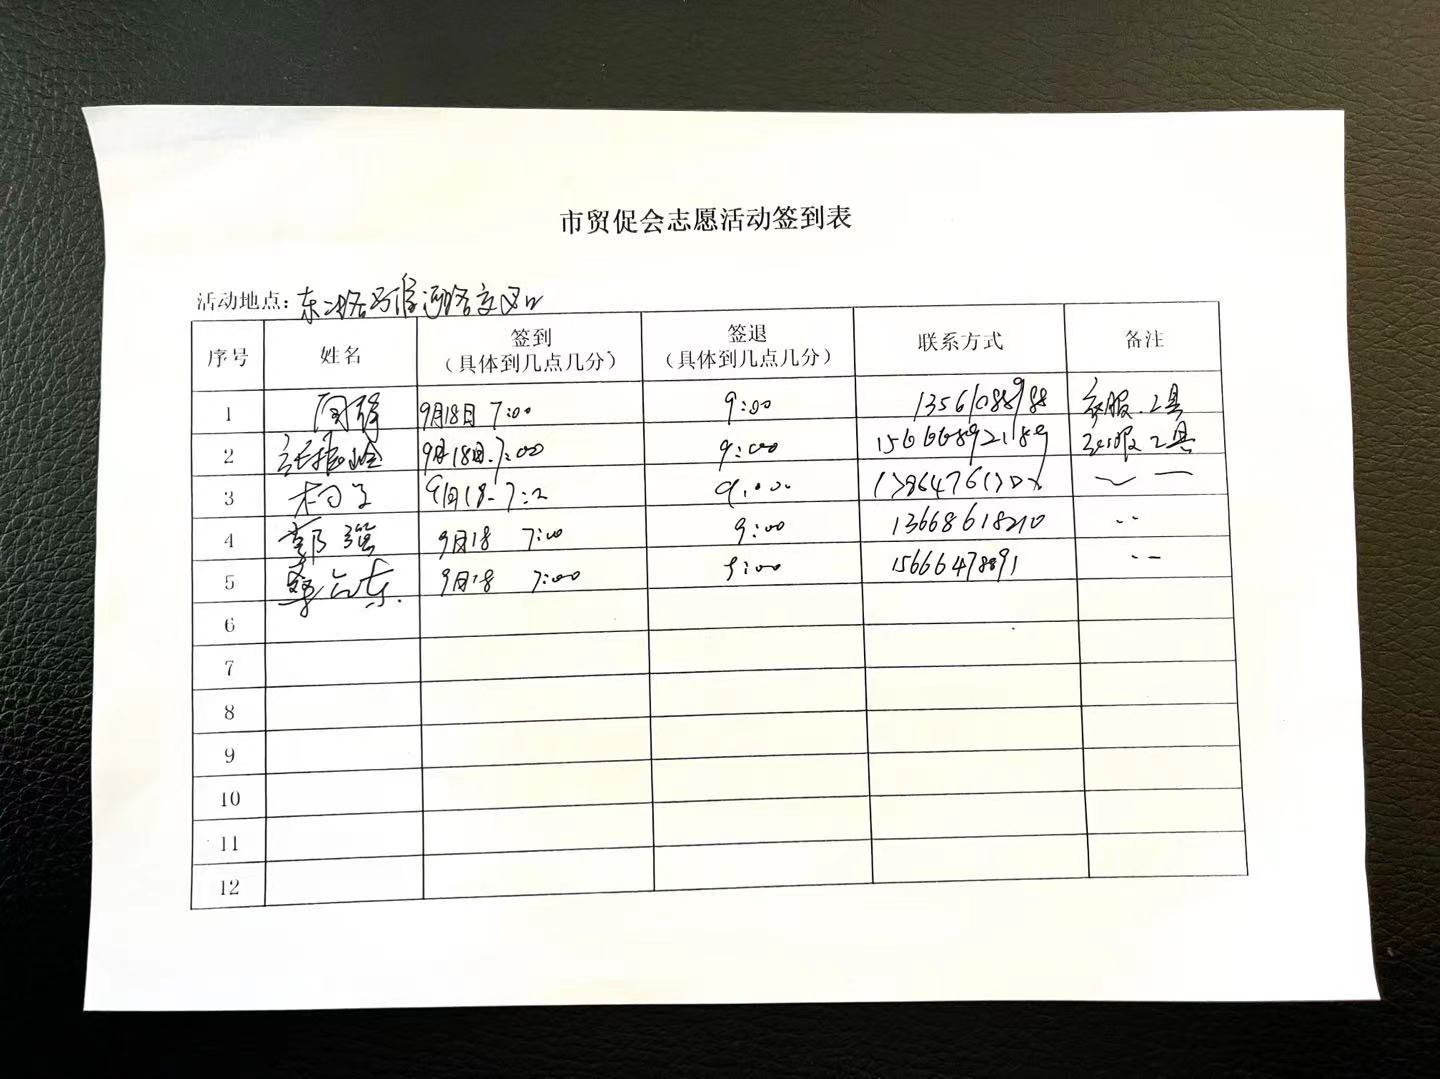 市贸促会志愿活动签到表
活动地点: 东二路与淮河路交叉口
序号 姓名 签到 签退 联系方式 备注
(具体到几点几分) (具体到几点几分)
1 9月18日 7:00 9:00 13561088988 衣服.工具
2 9月18日.7:00 9:00 衣服 工具
3 9月18- 9:00
4 郭强 9月18 7:00 9:00 13668618210
5 9月18 7:00 9:00 15666478891
6
7
8
9
10
11
12